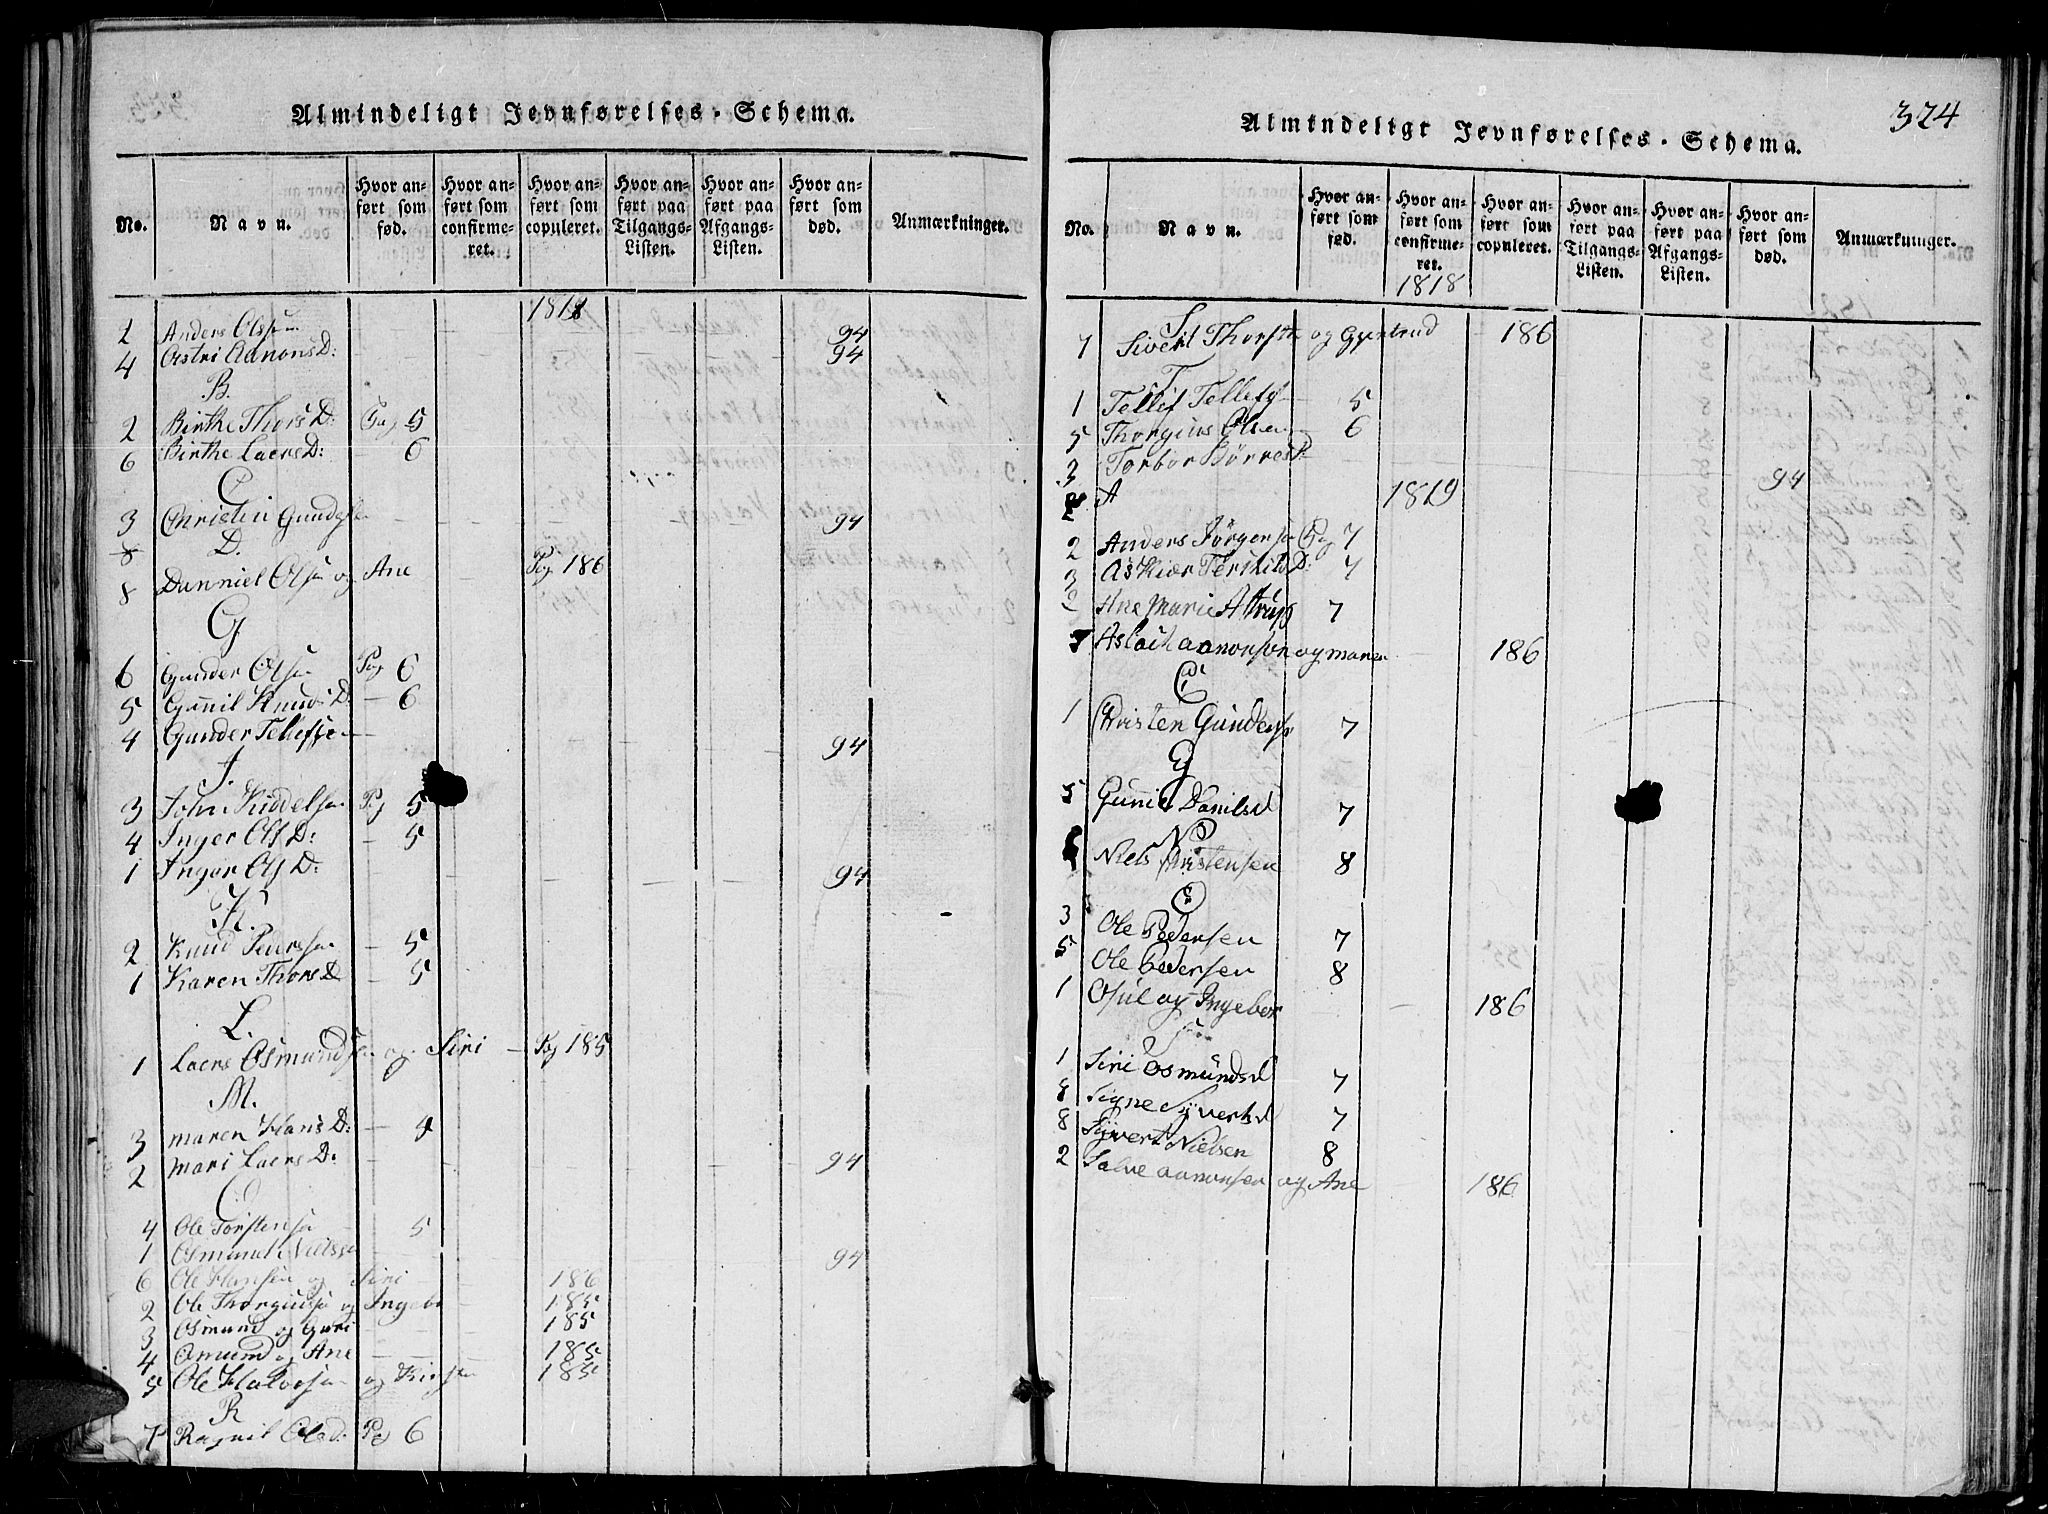 Almindeligt Jevnførelses-Schema.
No. Navn. Hvor anført som fød. Hvor anført som confirmeret. Hvor anført som copuleret. Hvor anført paa Tilgangs-Listen. Hvor anført paa Afgangs-Listen. Hvor anført som død. Anmærkninger.
1818
2 Anders Olssen 94
4 Astri Aanons D: 94
B.
2 Birthe Thors D: Pag 5
6 Birthe Laers D: 6
C
3 Christin Gundes 94
D.
8 Danniel Olsen og Ane Pag 186
G
6 Gunder Olsen Pag 6
5 Gunnil Knuds D. 6
4 Gunder Tellefse 94
J.
3 John Kiddelsen Pag 5
4 Inger Ols D: 5
1 Inger Ols D: 94
K.
2 Knud Peersen 5
1 Karen Thors D 5
L.
1 Laers Osmundsen og Siri Pag 185
M.
3 Maren Hans D: 4
2 Mari Laers D: 94
O
4 Ole Torstensen 5
1 Osmund Nielsse 94
6 Ole Hansen og Siri 186
2 Ole Thorgiussen og Ingebor 185
3 Osmund og Guri 185
4 Omund og Ane 185
5 Ole Halvorsen og Kirsten 185
R
7 Ragnil Olsd: Pag 6
Almindeligt Jevnførelses-Schema.
324
No. Navn. Hvor anført som fød. Hvor anført som confirmeret. Hvor anført som copuleret. Hvor anført paa Tilgangs-Listen. Hvor anført paa Afgangs-Listen. Hvor anført som død. Anmærkninger.
1818
S
7 Sivert Thorsten og Gyertrud 186
T
1 Tellef Tellefs 5
5 Thorgius Olsen 6
3 Torbor Børres D 94
A 1819
2 Anders Jørgensen Pag 7
3 Askier Terkilds D: 7
Ane Marie Attrup 7
Aslach Aanonsen og Maren 186
C
1 Christen Gunderse 7
G
5 Gunnil Danilsd 7
N
Niels Christensen 8
O
3 Ole Pedersen 7
5 Ole Pedersen 8
1 Osul og Ingebor 186
S
1 Siri Osmundsd 7
Signe Syvertsd 7
8 Syvert Nielsen 8
2 Salve Aanonsen og Ane 186